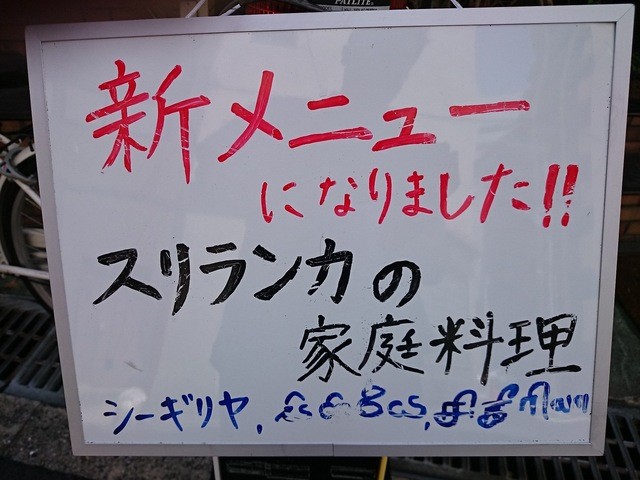 PATLITE
新メニュー
になりました!!
スリランカの
家庭料理
シーギリヤ,